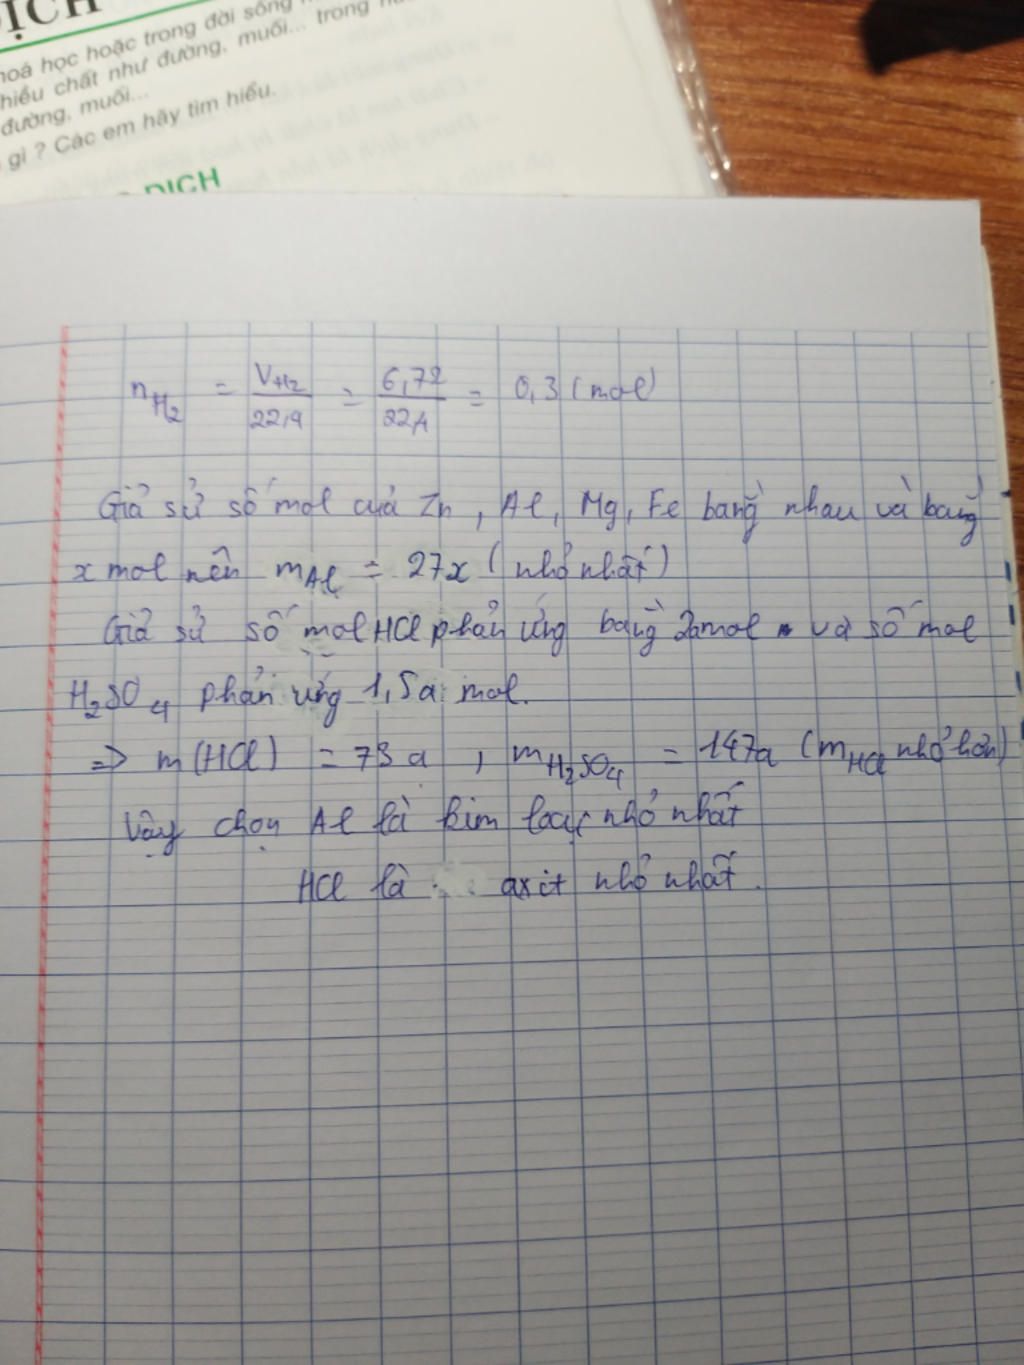 ỊCH
hoá học hoặc trong đời sống
hiều chất như đường, muối... trong
đường, muối...
gì ? Các em hãy tìm hiểu.
DỊCH
n H₂ = V H₂ / 22,4 = 6,72 / 22,4 = 0,3 (mol)
Giả sử số mol của Zn, Al, Mg, Fe bằng nhau và bằng
x mol nên m Al = 27x (nhỏ nhất)
Giả sử số mol HCl phản ứng bằng 2a mol và số mol
H₂SO₄ phản ứng 1,5a mol.
=> m(HCl) = 73a , m H₂SO₄ = 147a (m HCl nhỏ hơn)
Vậy chọn Al là kim loại nhỏ nhất
HCl là axit nhỏ nhất.